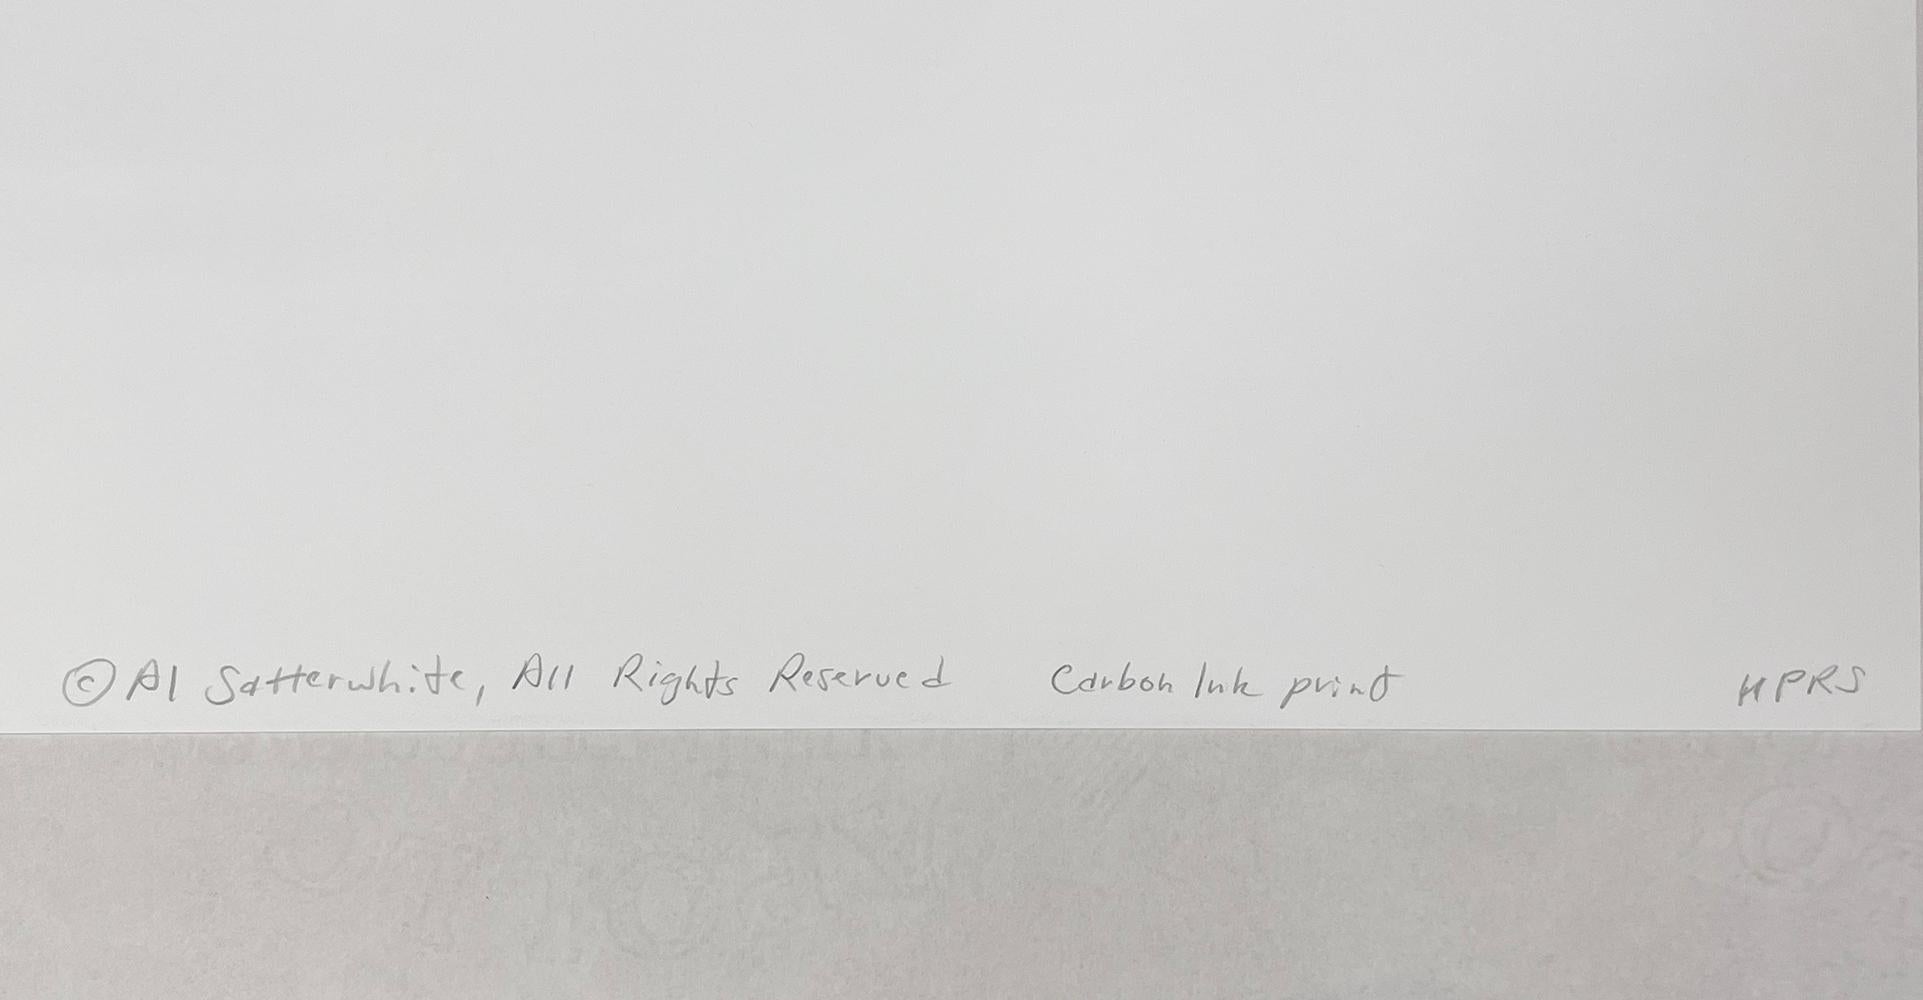 © Al Satterwhite, All Rights Reserved Carbon Ink print HPRS